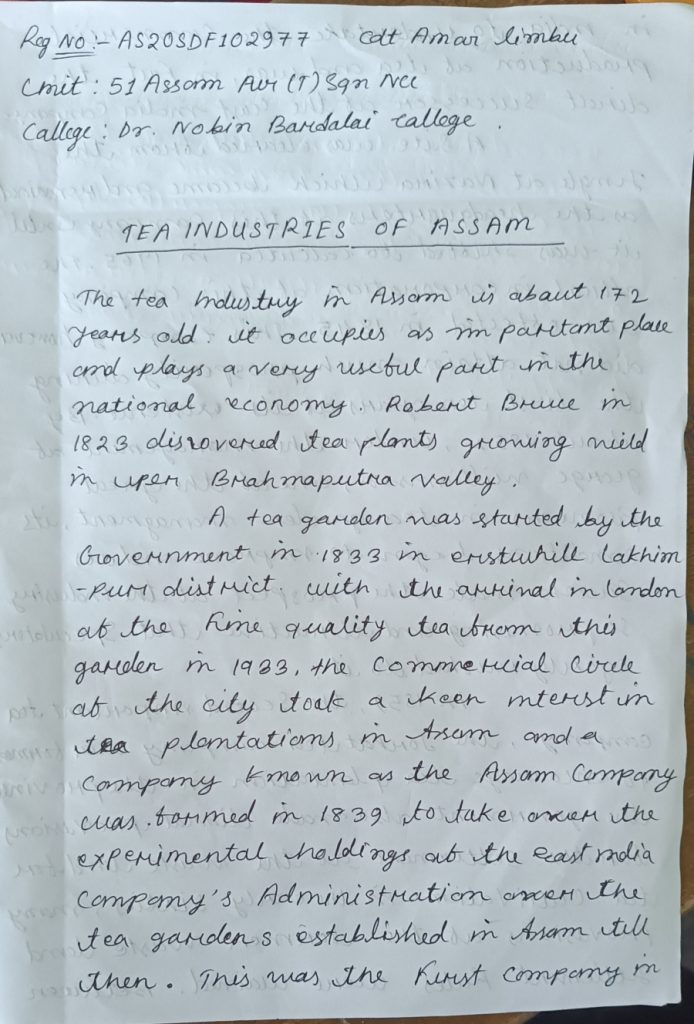 Reg No :- AS20SDF102977 Cdt Amar limbu
Unit : 51 Assam Air (T) Sqn Ncc
College : Dr. Nobin Bardalai College .
TEA INDUSTRIES OF ASSAM
The tea Industry in Assam is about 172
years old. it occupies as im partant place
and plays a very useful part in the
national economy. Robert Bruce in
1823 discovered tea plants growing wild
in uper Brahmaputra valley.
A tea garden was started by the
Government in 1833 in erstwhill Lakhim
-pur district. with the arrival in london
of the fine quality tea from this
garden in 1933, the Commercial Circle
of the city took a keen interst in
tea plantations in Assam and a
Company known as the Assam Company
was formed in 1839 to take over the
experimental holdings of the East India
Company's Administration over the
tea gardens established in Assam till
then. This was the first company in